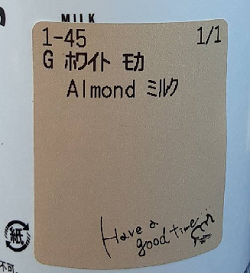 MILK
1-45 1/1
G ホワイト モカ
Almond ミルク
Have a
good time
紙
不可.